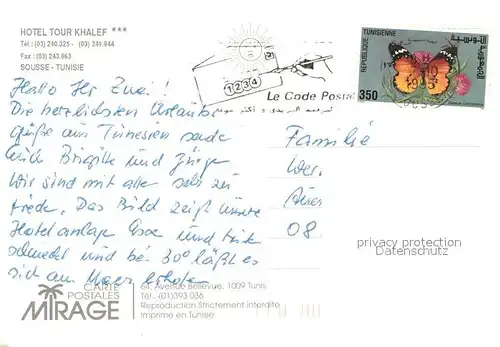 HOTEL TOUR KHALEF ***
Tél : (03) 240.325 - (03) 241.844
Fax : (03) 243.863
SOUSSE - TUNISIE
REPUBLIQUE TUNISIENNE
350
1234
Le Code Postal
Hallo Ihr Zwei!
Die herzlichsten Urlaubs
grüße aus Tunesien sende
Euch Brigitte und Jürgen
Wir sind mit alle sehr zu
friede. Das Bild zeigt unsere
Hotelanlage und
schmeckt und bei 30° läßt es
sich am Meer
Familie
08
privacy protection
Datenschutz
CARTE
POSTALES
MIRAGE
Avenue Bellevue, 1009 Tunis
Tél.. (01)393 036
Reproduction Strictement interdite
Imprime en Tunisie